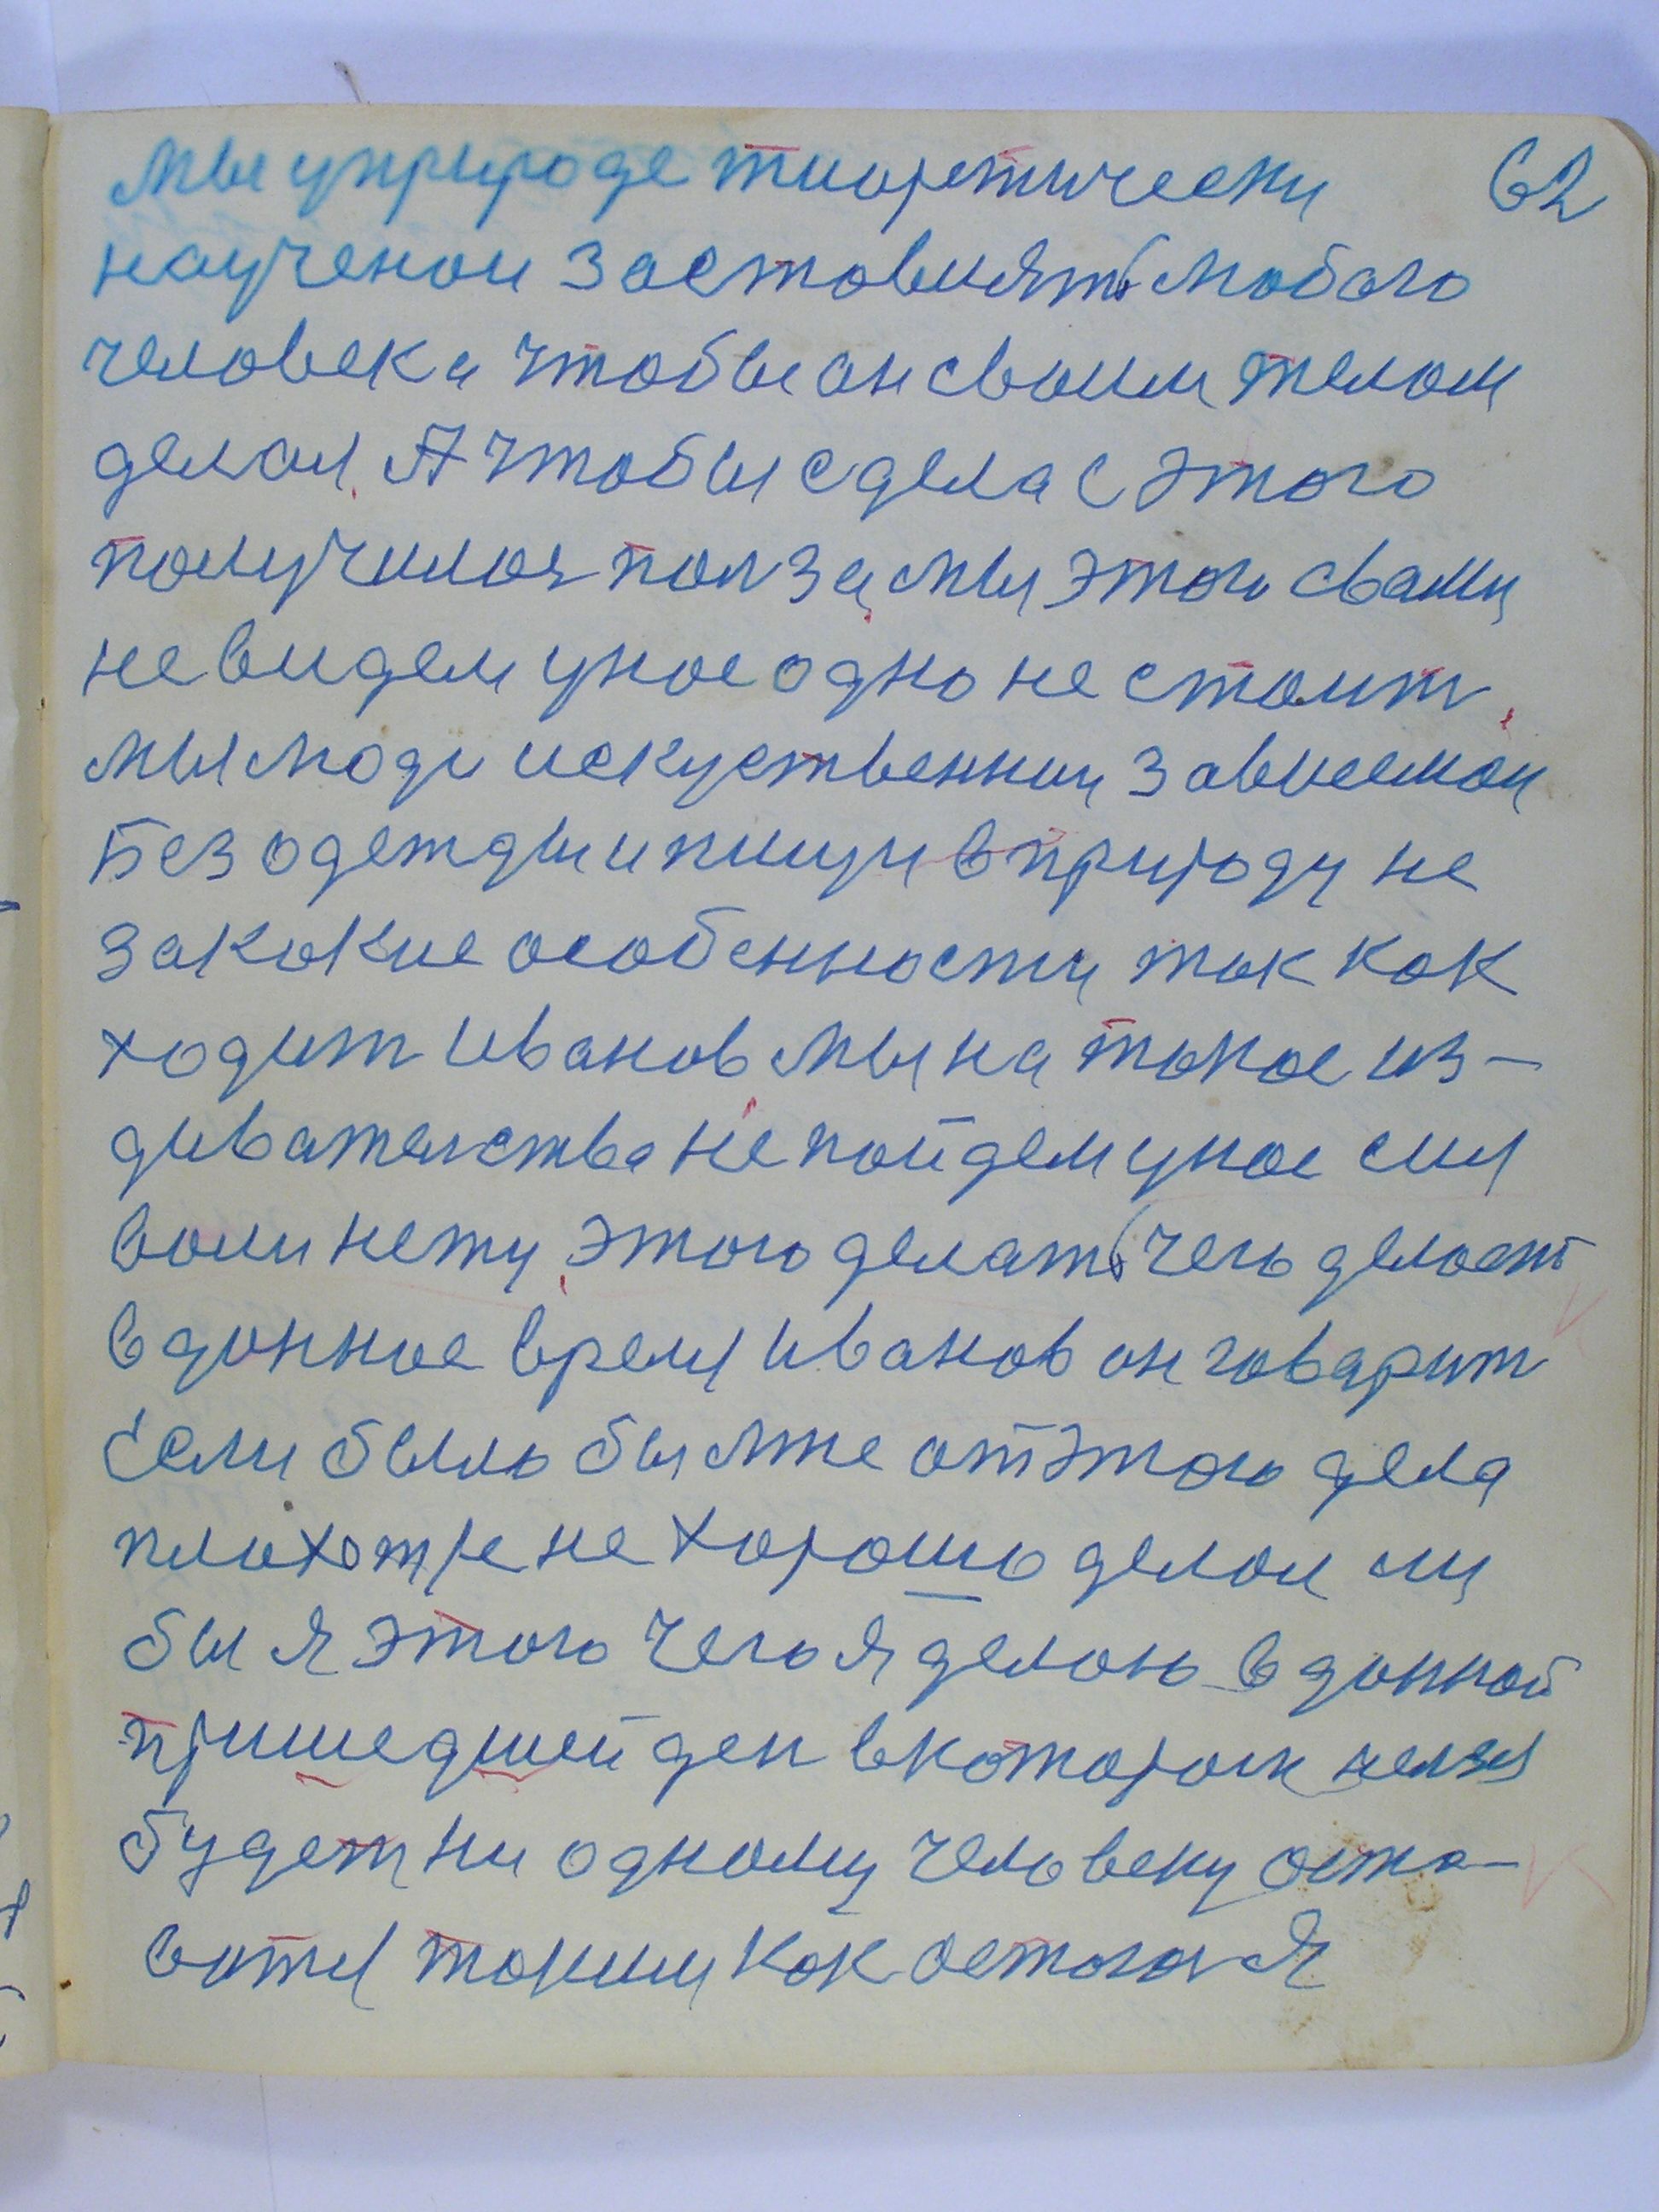 62
мы уприроде тиоретически
научекои заставлять любого
человека чтобы он своим телом
делал, А чтобы сдела с этого
получилоя полза, мы этого свами
не видем унас одно не стоит,
мы люди искуственнии зависимаи
Без одежды и пищи вприроду не
закакие особенности так как
ходит Иванов мы на такое из-
дивателства не пойдем унас сил
воли нету, этого делать чего делает
вданное время Иванов он говарит
Если было бы мне от этого дела
плохо тже не хорошо делал ли
бы я этого чего я делаю в данной
пришедшей ден вкотором нелзя
будет ни одному человеку оста-
ватся такими как остался